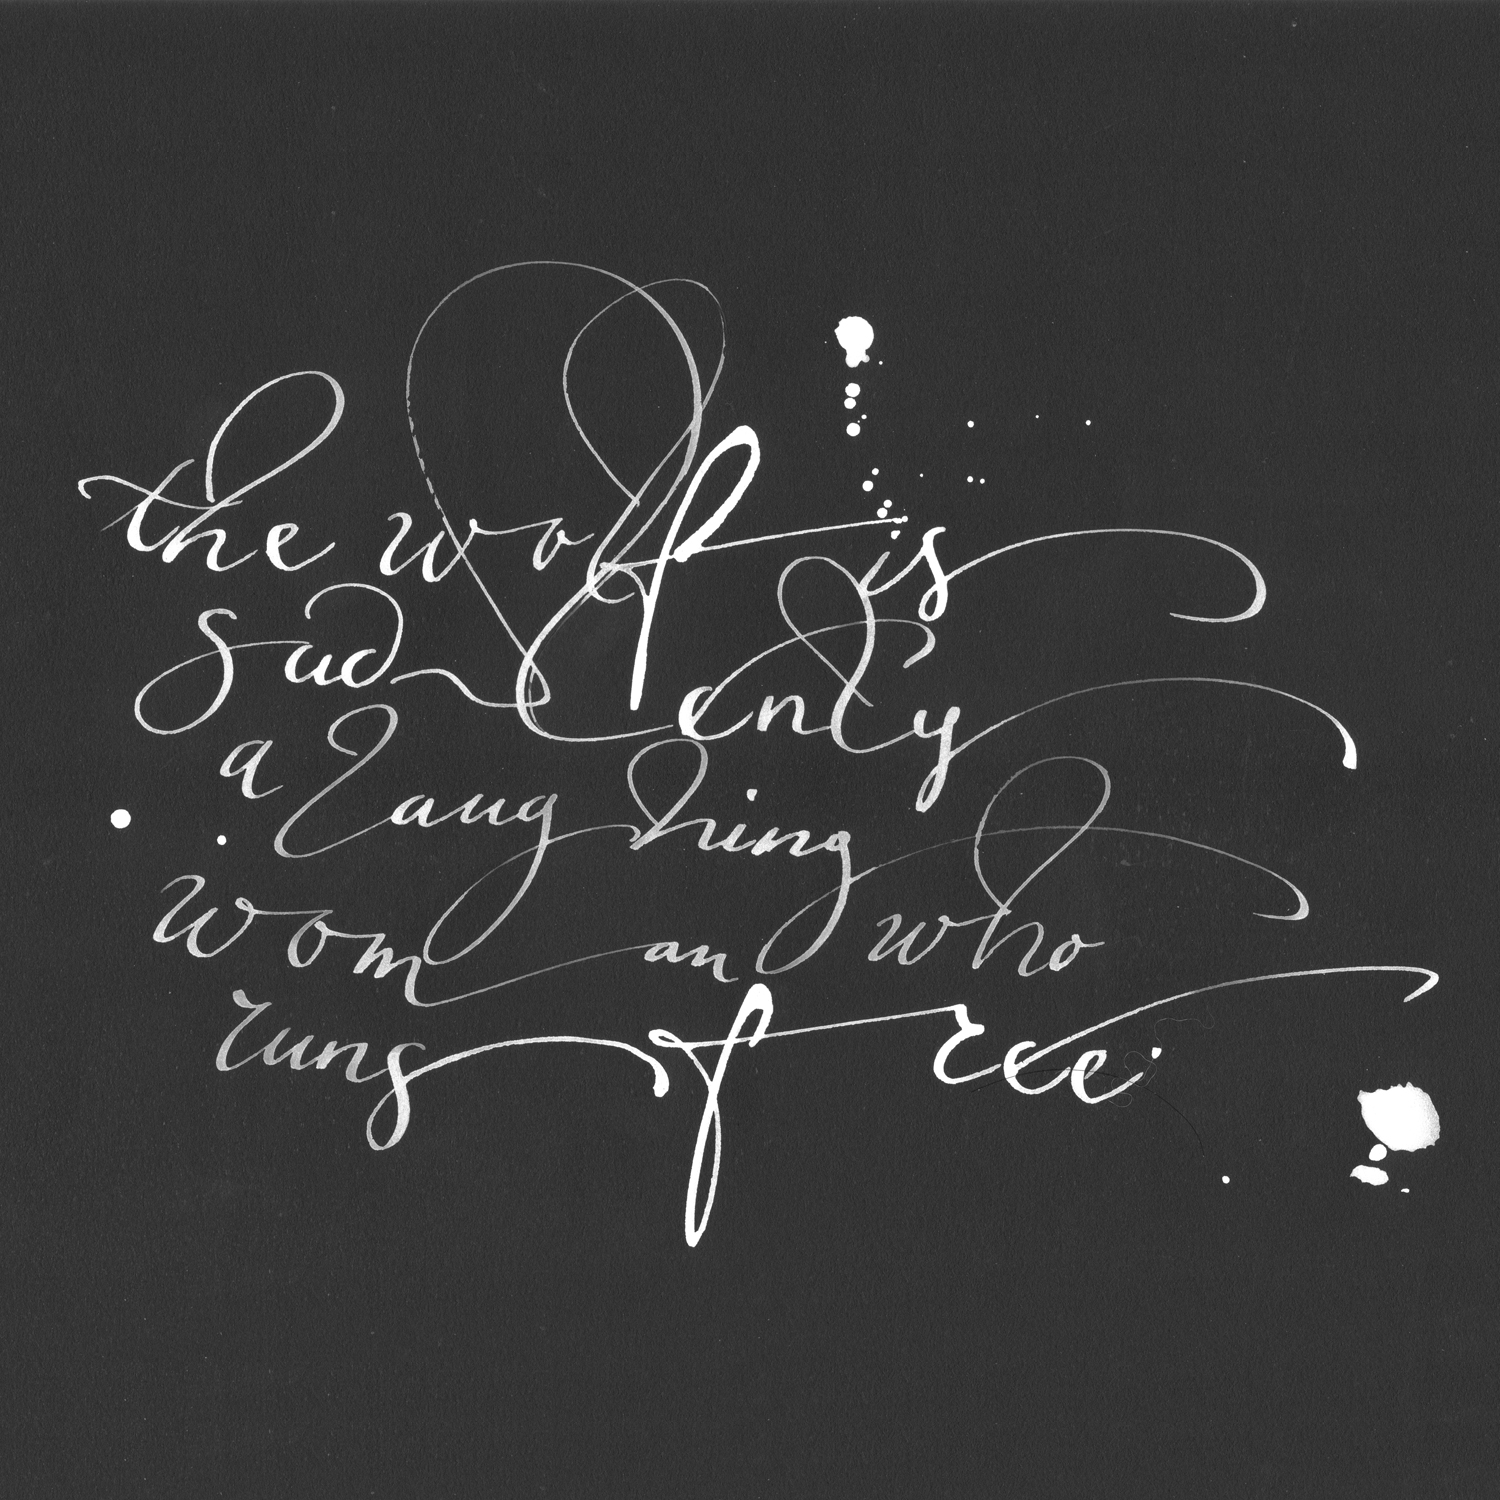 the wolf is
sad only
a laughing
woman who
runs free